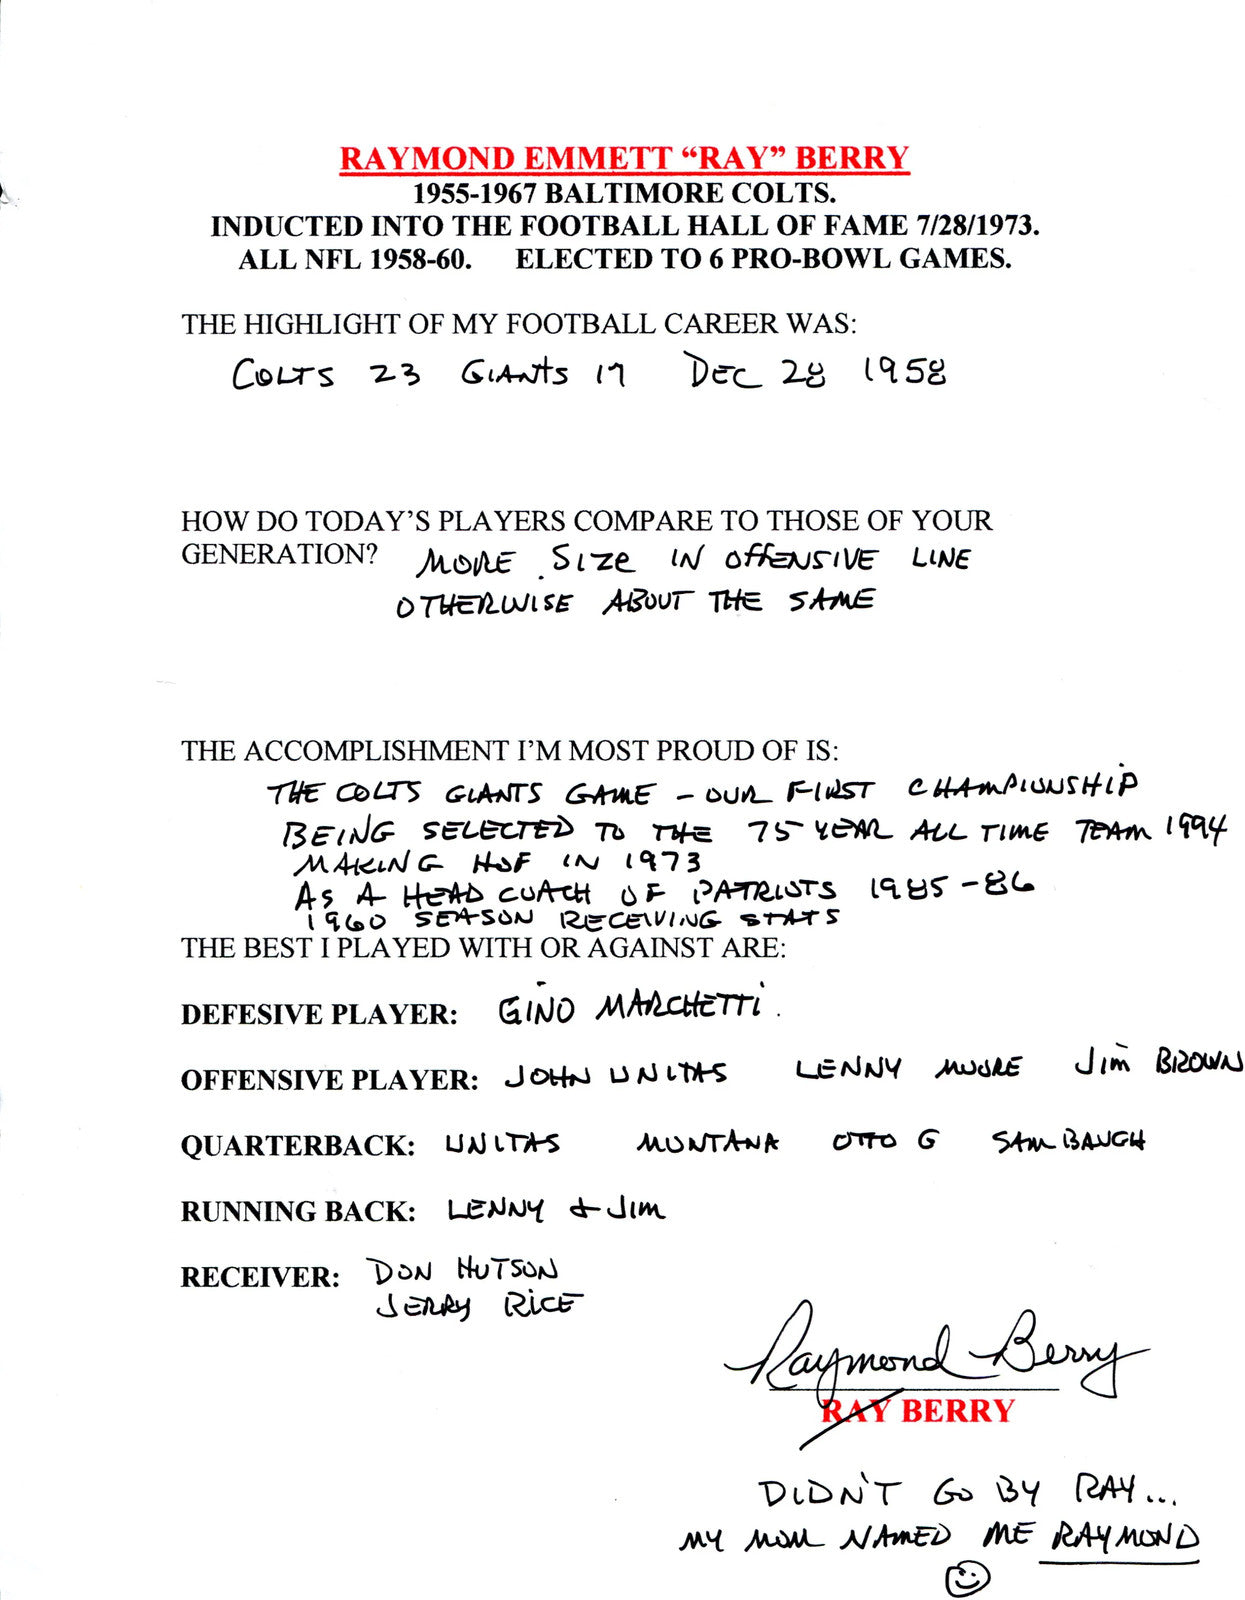 RAYMOND EMMETT “RAY” BERRY
1955-1967 BALTIMORE COLTS.
INDUCTED INTO THE FOOTBALL HALL OF FAME 7/28/1973.
ALL NFL 1958-60. ELECTED TO 6 PRO-BOWL GAMES.
THE HIGHLIGHT OF MY FOOTBALL CAREER WAS:
COLTS 23 GIANTS 17 DEC 28 1958
HOW DO TODAY’S PLAYERS COMPARE TO THOSE OF YOUR
GENERATION? MORE SIZE IN OFFENSIVE LINE
OTHERWISE ABOUT THE SAME
THE ACCOMPLISHMENT I’M MOST PROUD OF IS:
THE COLTS GIANTS GAME – OUR FIRST CHAMPIONSHIP
BEING SELECTED TO THE 75 YEAR ALL TIME TEAM 1994
MAKING HOF IN 1973
AS A HEAD COACH OF PATRIOTS 1985-86
1960 SEASON RECEIVING STATS
THE BEST I PLAYED WITH OR AGAINST ARE:
DEFESIVE PLAYER: GINO MARCHETTI.
OFFENSIVE PLAYER: JOHN UNITAS LENNY MOORE JIM BROWN
QUARTERBACK: UNITAS MONTANA OTTO G SAM BAUGH
RUNNING BACK: LENNY & JIM
RECEIVER: DON HUTSON
JERRY RICE
Raymond Berry
RAY BERRY
DIDN'T GO BY RAY...
MY MOM NAMED ME RAYMOND